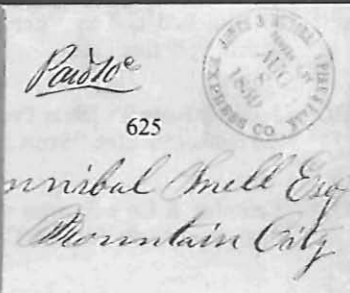 Paid 10c
JONES & RUSSELL PIKES PEAK
AUG
8
EXPRESS CO.
625
nnibal Snell Esq
Mountain City